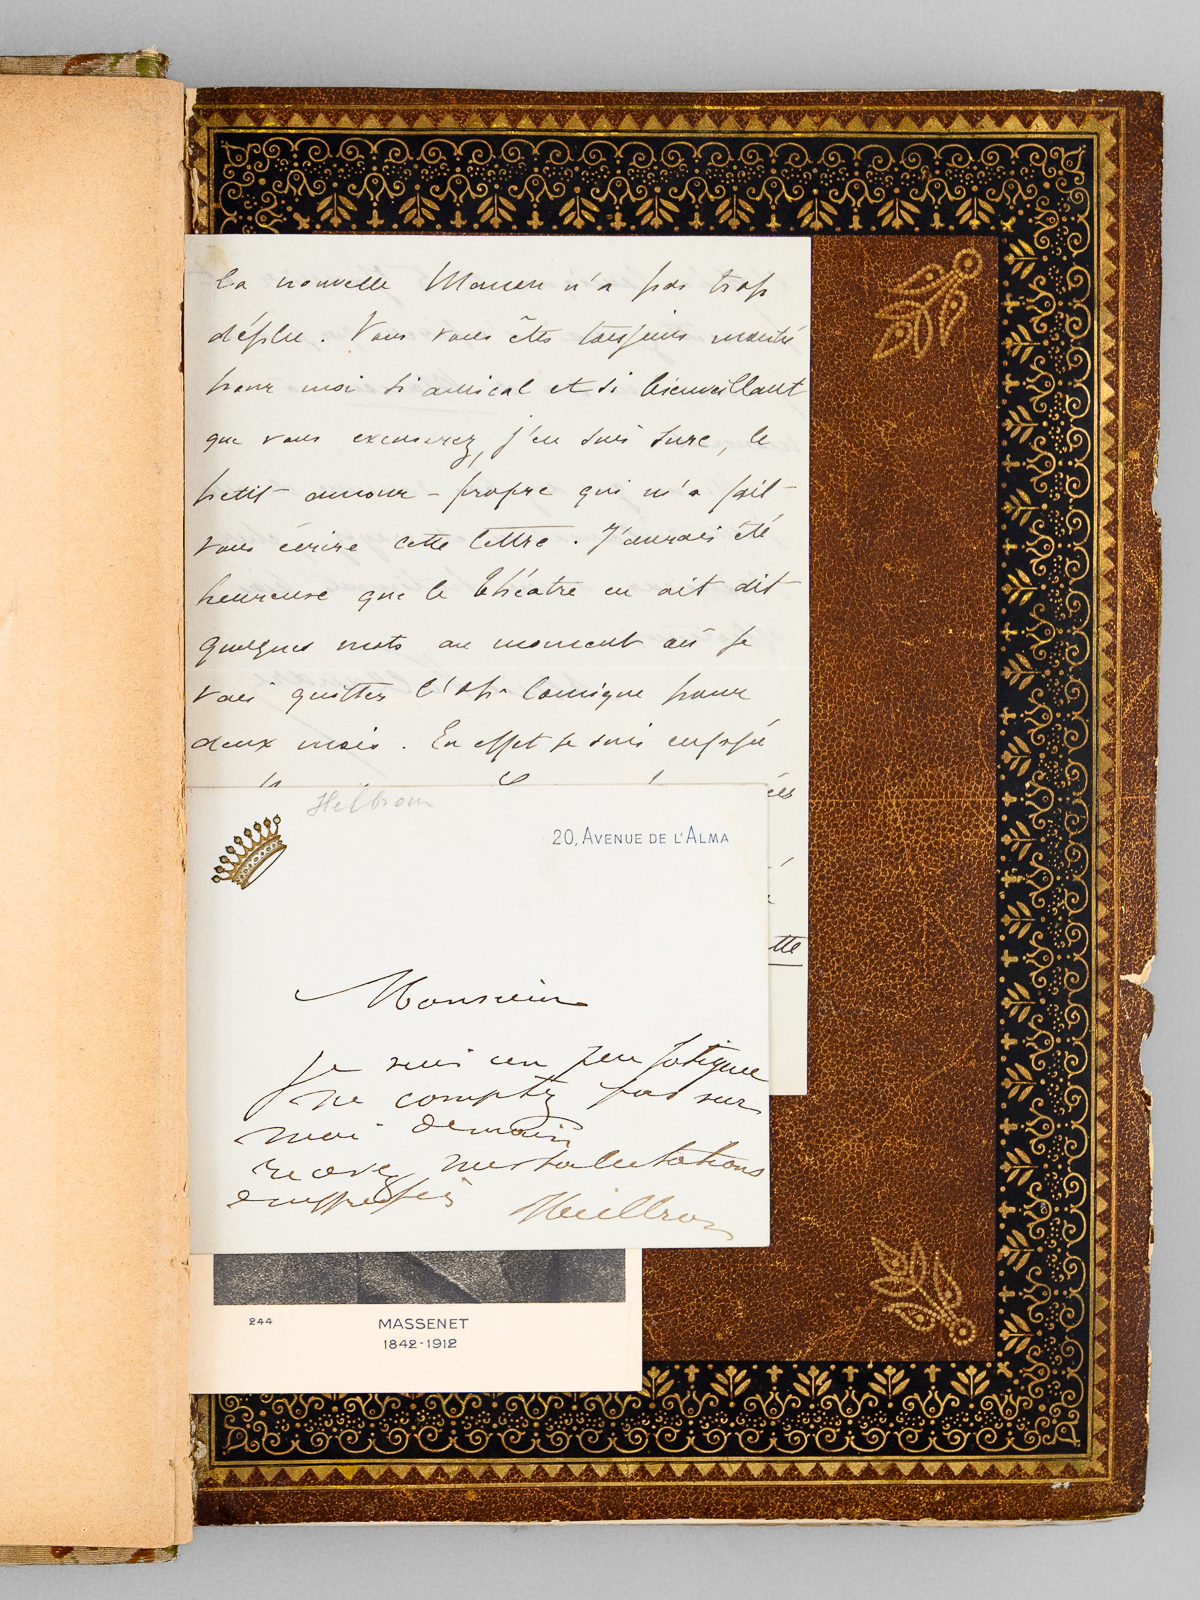 la nouvelle Manon n'a pas trop
déplu. Vous vous êtes toujours montré
pour moi si amical et si bienveillant
que vous excuserez, j'en suis sure, le
petit amour-propre qui m'a fait
vous écrire cette lettre. J'aurais été
heureuse que le Théâtre en ait dit
quelques mots au moment où je
vais quitter l'Op. Comique pour
deux mois. En effet je suis engagé
tte
Heilbron
20, AVENUE DE L'ALMA
Monsieur
Je suis un peu fatiguee
ne comptez pas sur
moi demain
recevez mes salutations
empressées
Heilbron
244
MASSENET
1842-1912